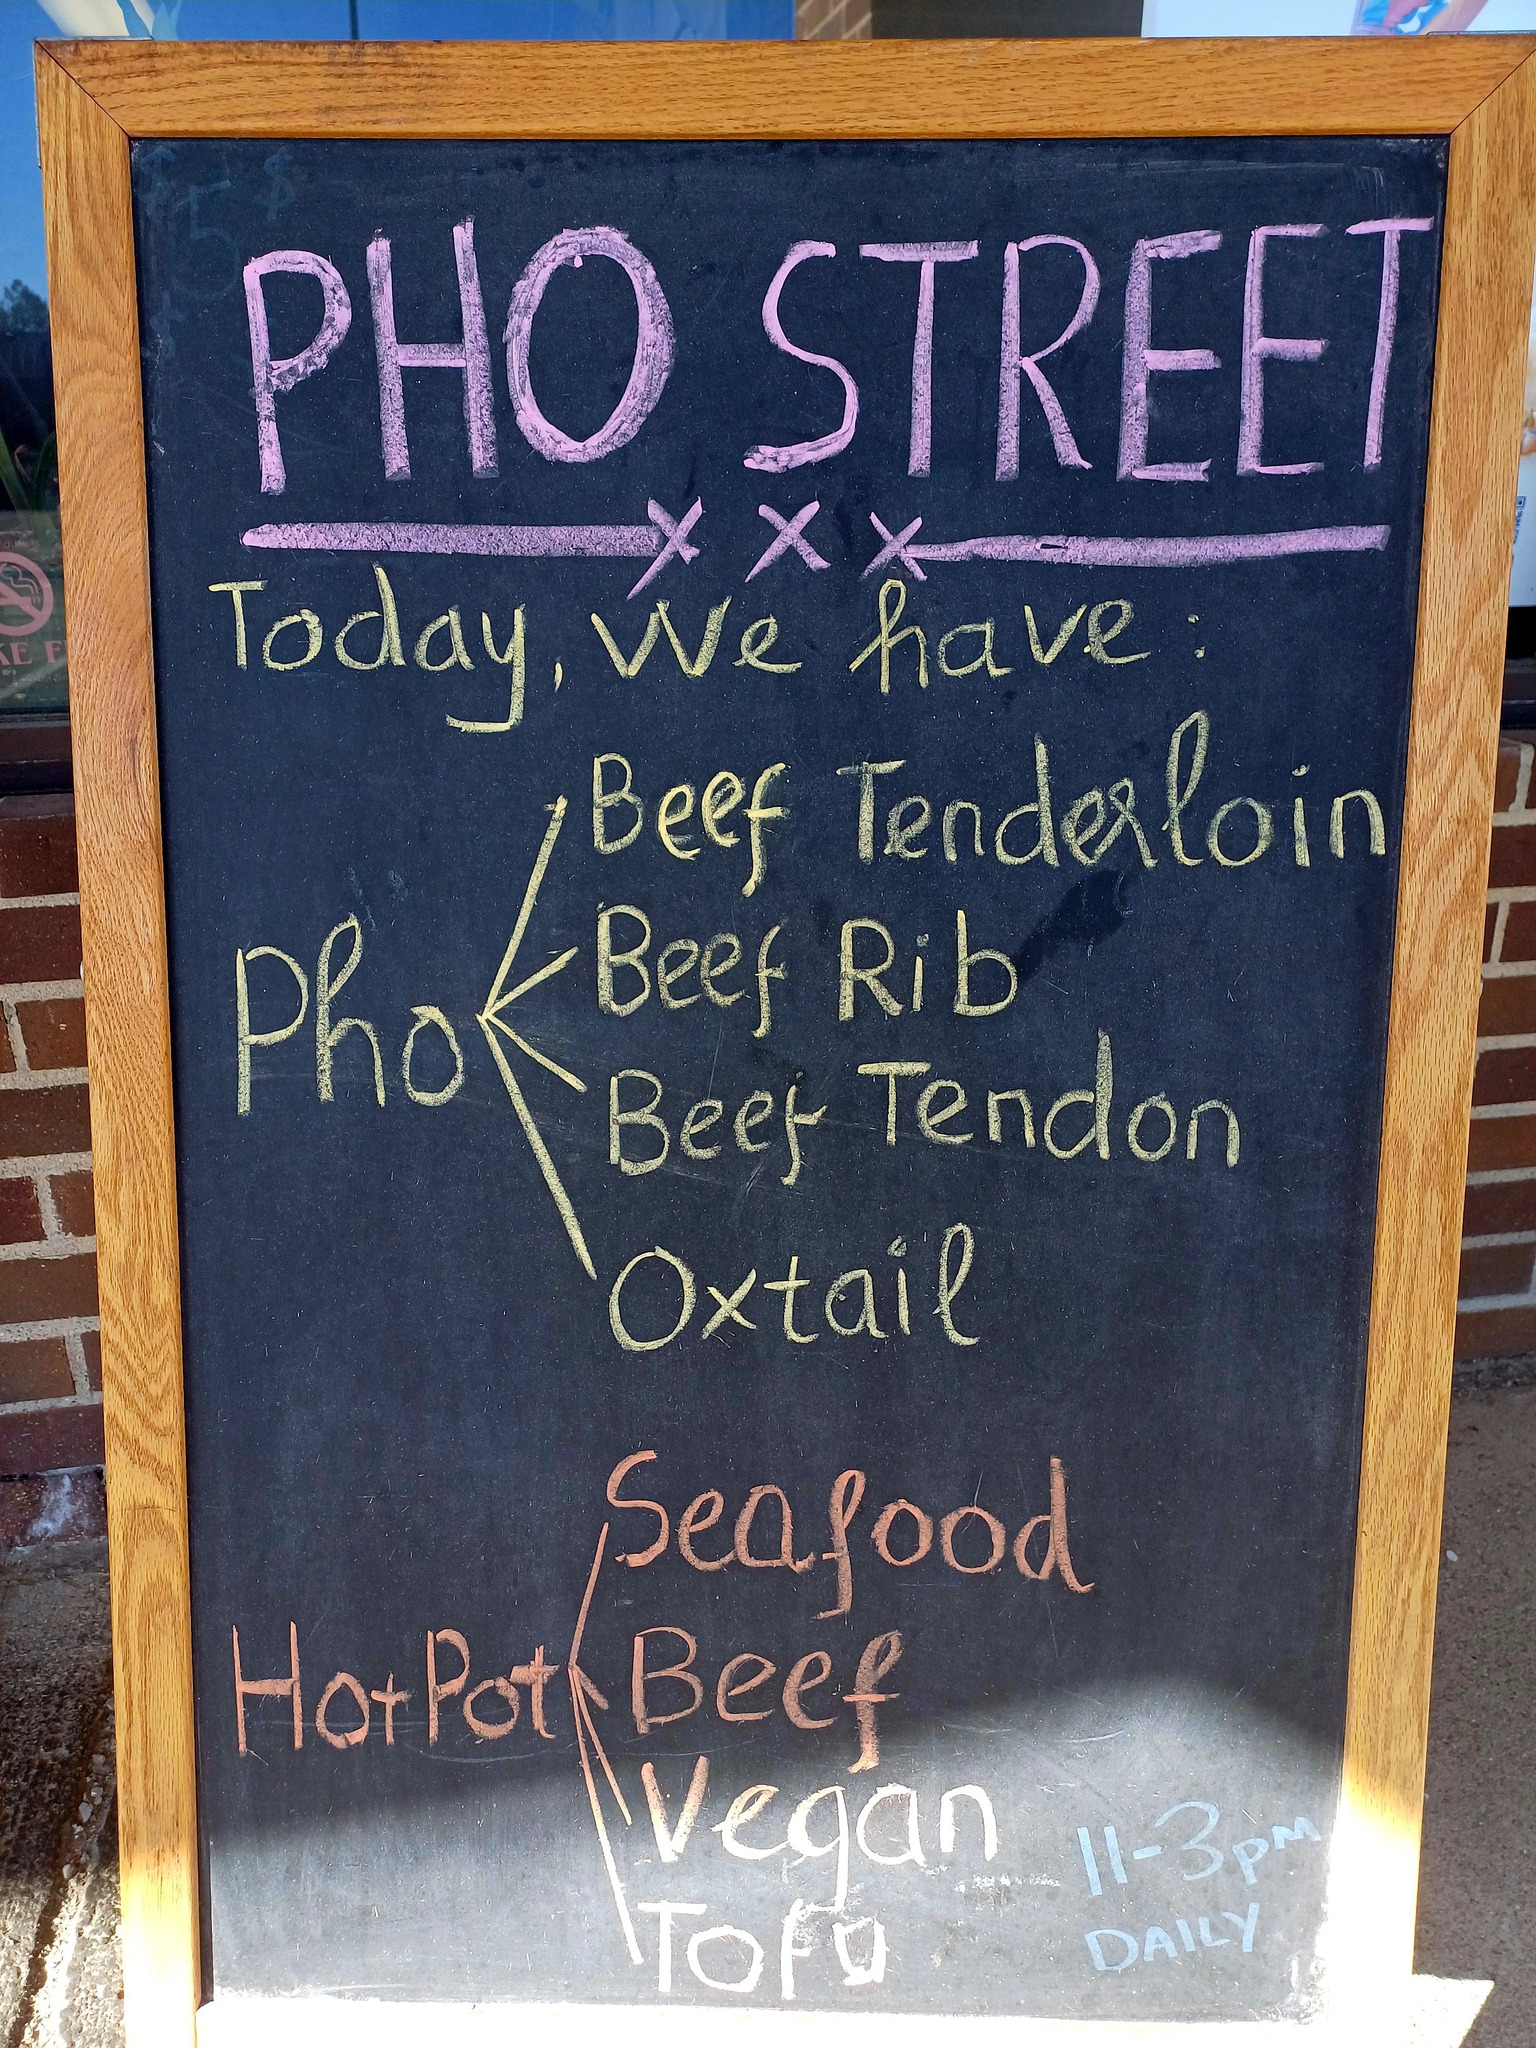 PHO STREET
x x x
Today, We have:
Beef Tenderloin
Beef Rib
Pho
Beef Tendon
Oxtail
Seafood
HotPot
Beef
Vegan
11-3pm
Tofu
DAILY